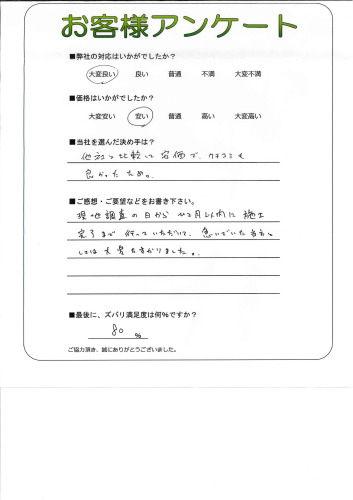 お客様アンケート
■弊社の対応はいかがでしたか？
大変良い 良い 普通 不満 大変不満
■価格はいかがでしたか？
大変安い 安い 普通 高い 大変高い
■当社を選んだ決め手は？
他社と比較して安価で、クチコミも
良かったため。
■ご感想・ご要望などをお書き下さい。
現地調査の日から 1ヶ月以内に施工
完了まで 行っていただいて、急いでいた当方と
しては大変助かりました。
■最後に、ズバリ満足度は何%ですか？
80 %
ご協力頂き、誠にありがとうございました。